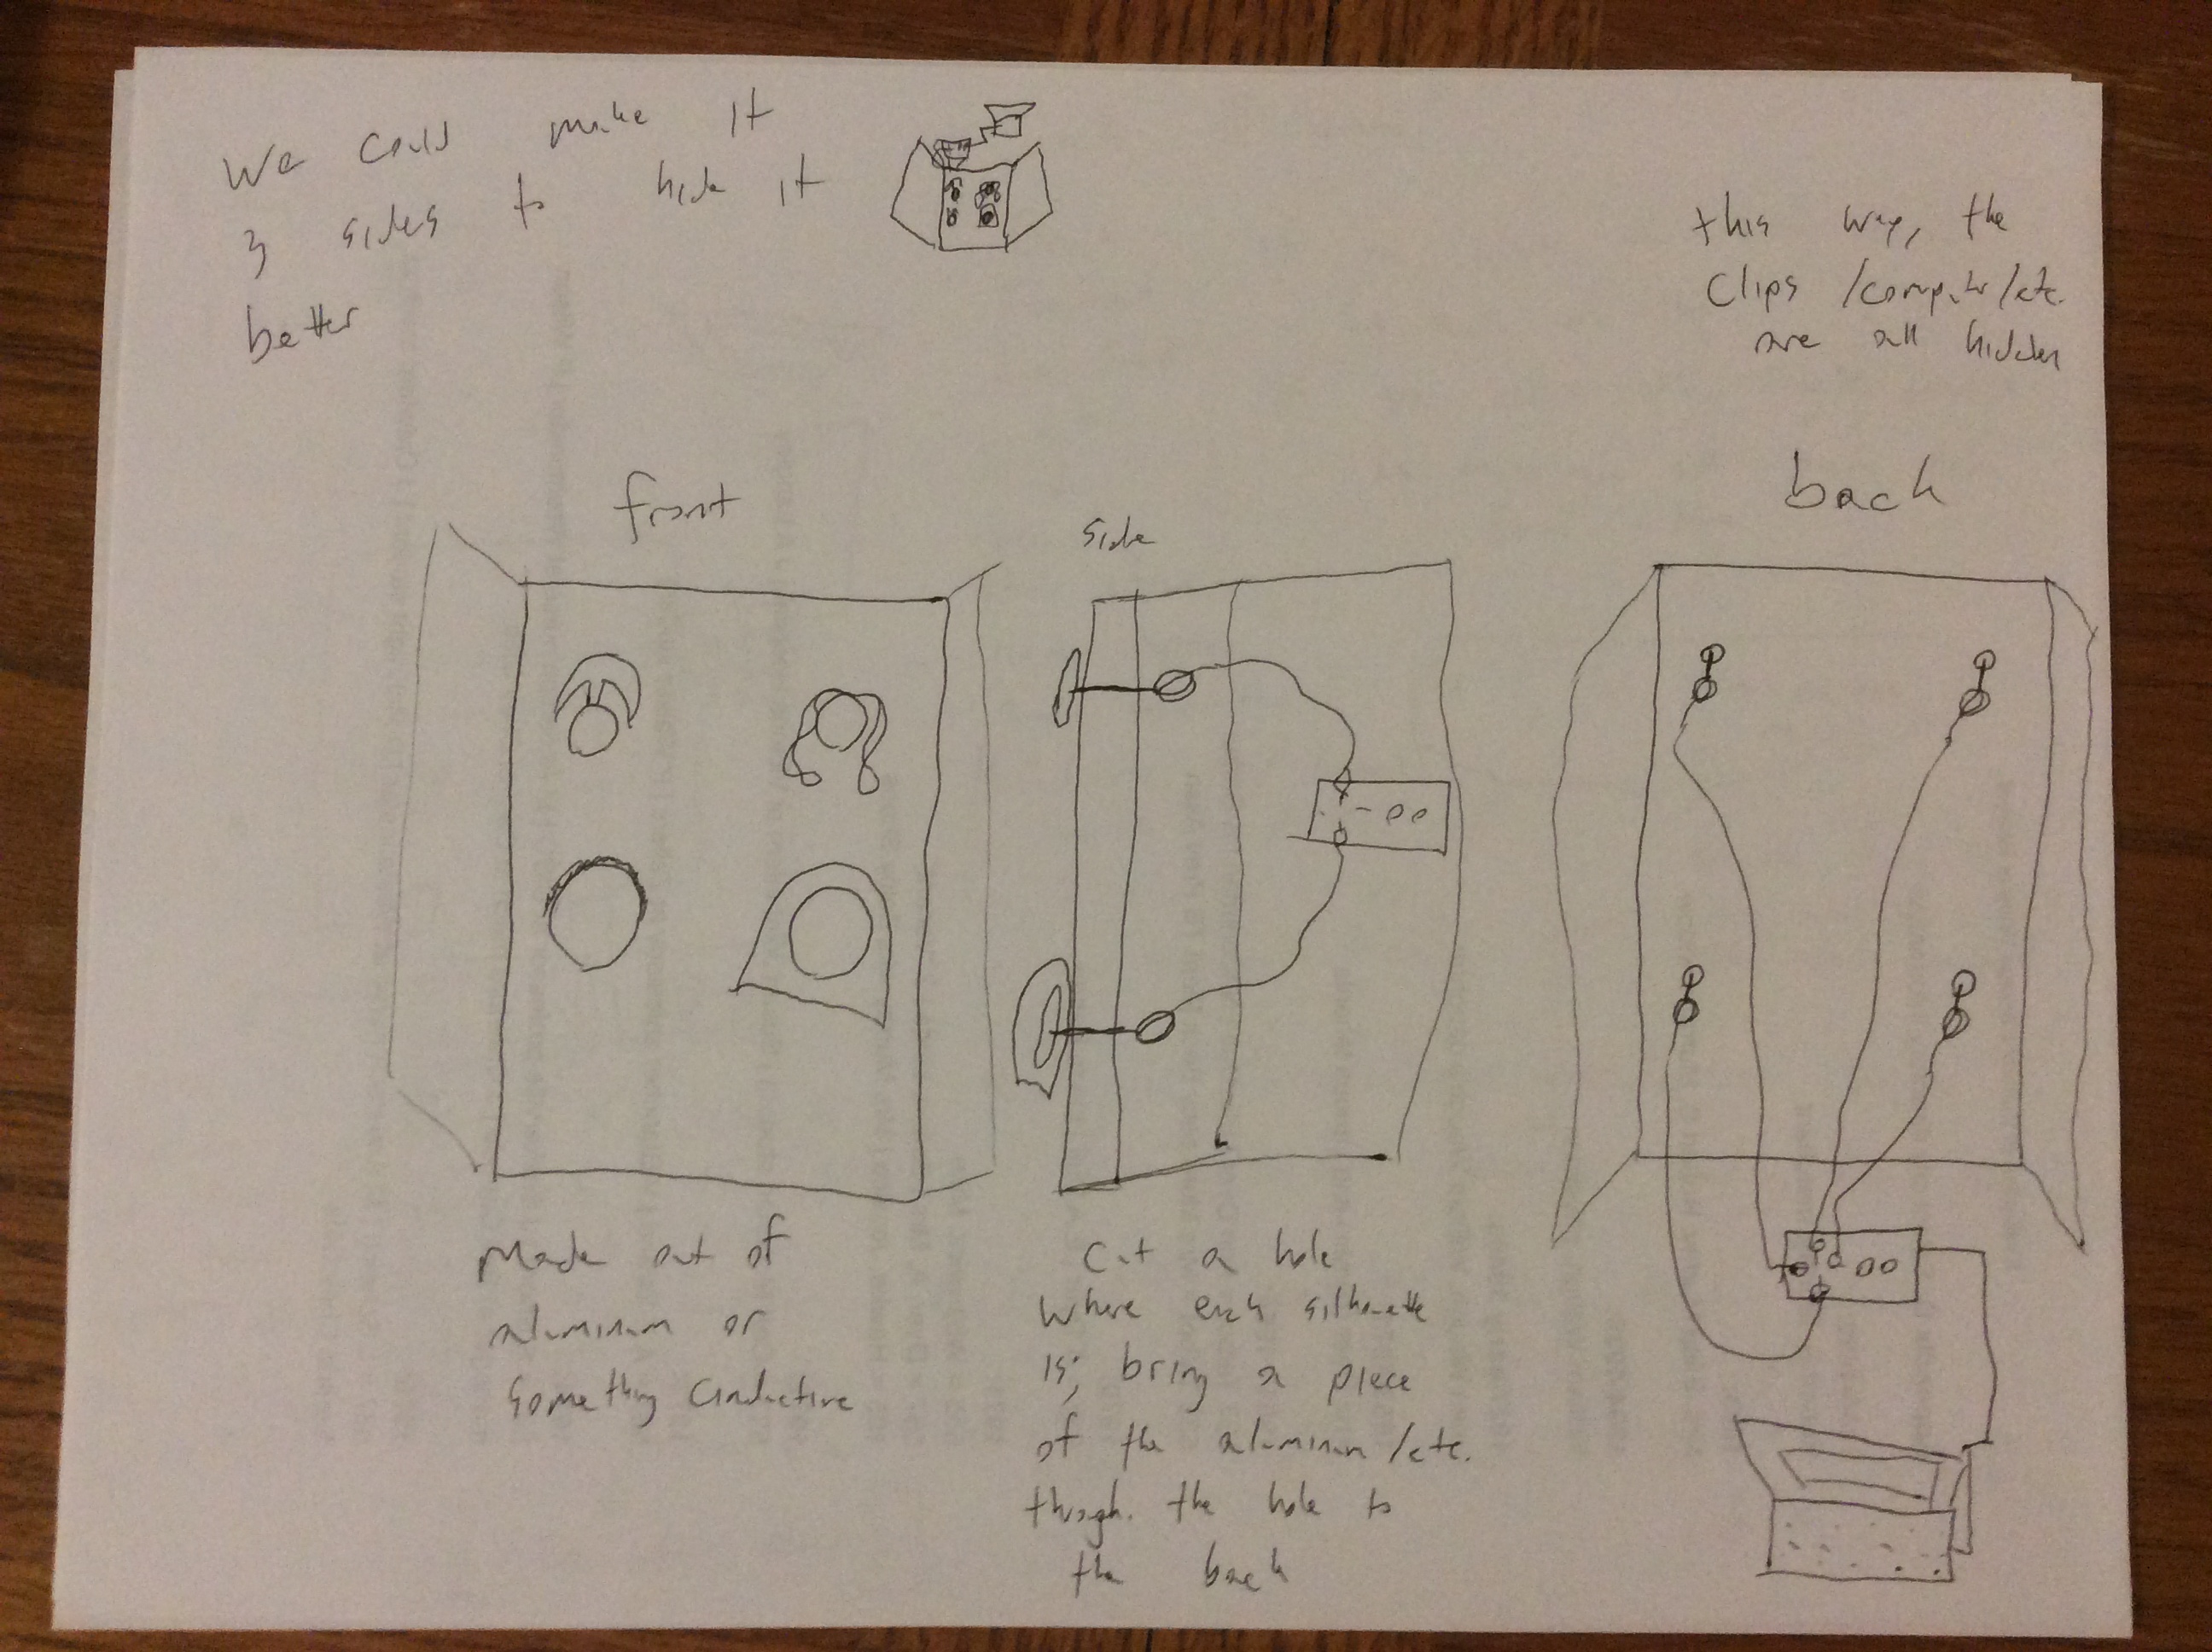 We could make it
3 sides to hide it
better
this way, the
clips /computer/etc.
are all hidden
front
side
back
Made out of
aluminum or
something conductive
cut a hole
where each silhouette
is; bring a piece
of the aluminum/etc.
through the hole to
the back